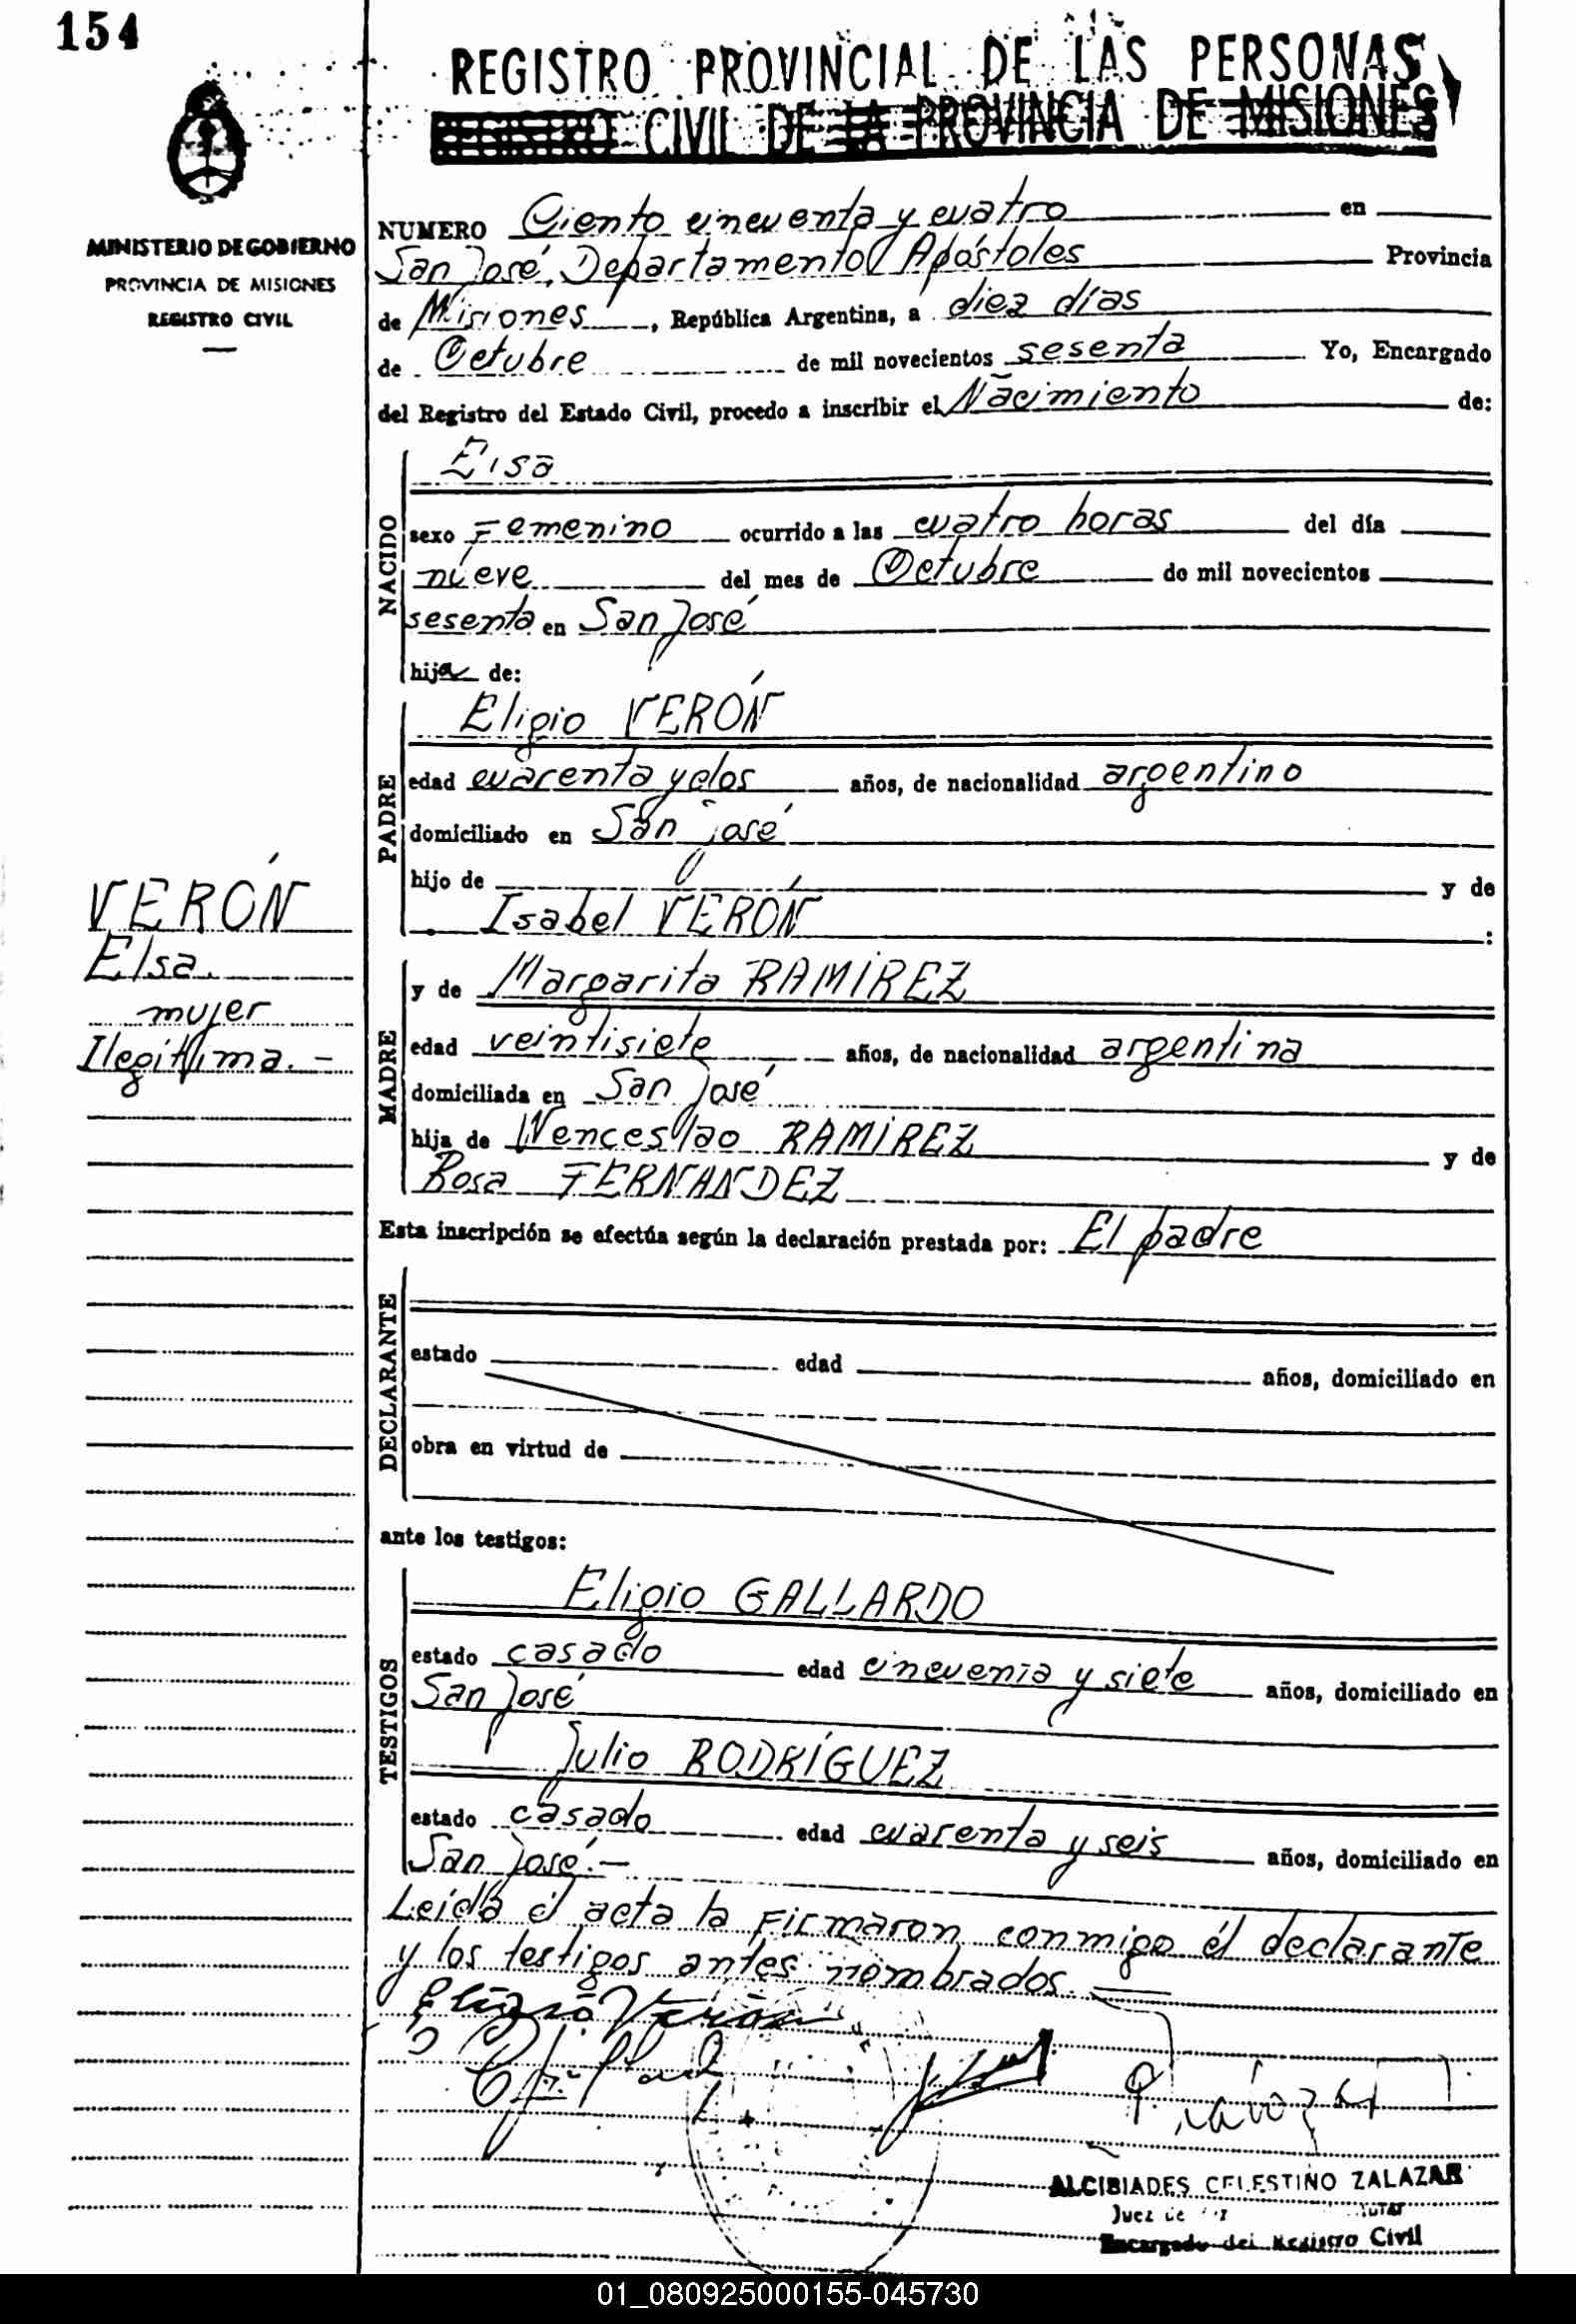 154
REGISTRO PROVINCIAL DE LAS PERSONAS
REGISTRO CIVIL DE LA PROVINCIA DE MISIONES
MINISTERIO DE GOBIERNO
PROVINCIA DE MISIONES
REGISTRO CIVIL
NUMERO Ciento cincuenta y cuatro en
San José, Departamento Apóstoles Provincia
de Misiones, República Argentina, a diez días
de Octubre de mil novecientos sesenta Yo, Encargado
del Registro del Estado Civil, procedo a inscribir el Nacimiento de:
NACIDO
Elsa
sexo Femenino ocurrido a las cuatro horas del día
nueve del mes de Octubre de mil novecientos
sesenta en San José
hija de:
PADRE
Eligio VERÓN
edad cuarenta y dos años, de nacionalidad argentino
domiciliado en San José
hijo de y de
Isabel VERÓN :
VERÓN
Elsa
mujer
Ilegítima.-
MADRE
y de Margarita RAMÍREZ
edad veintisiete años, de nacionalidad argentina
domiciliada en San José
hija de Wenceslao RAMÍREZ y de
Rosa FERNANDEZ
Esta inscripción se efectúa según la declaración prestada por: El padre
DECLARANTE
estado edad años, domiciliado en
obra en virtud de
ante los testigos:
TESTIGOS
Eligio GALLARDO
estado casado edad cincuenta y siete años, domiciliado en
San José
Julio RODRÍGUEZ
estado casado edad cuarenta y seis años, domiciliado en
San José.-
Leída el acta la firmaron conmigo él declarante
y los testigos antes nombrados.
Eligio Verón
ALCIBIADES CELESTINO ZALAZAR
Juez de
Encargado del Registro Civil
01_080925000155-045730